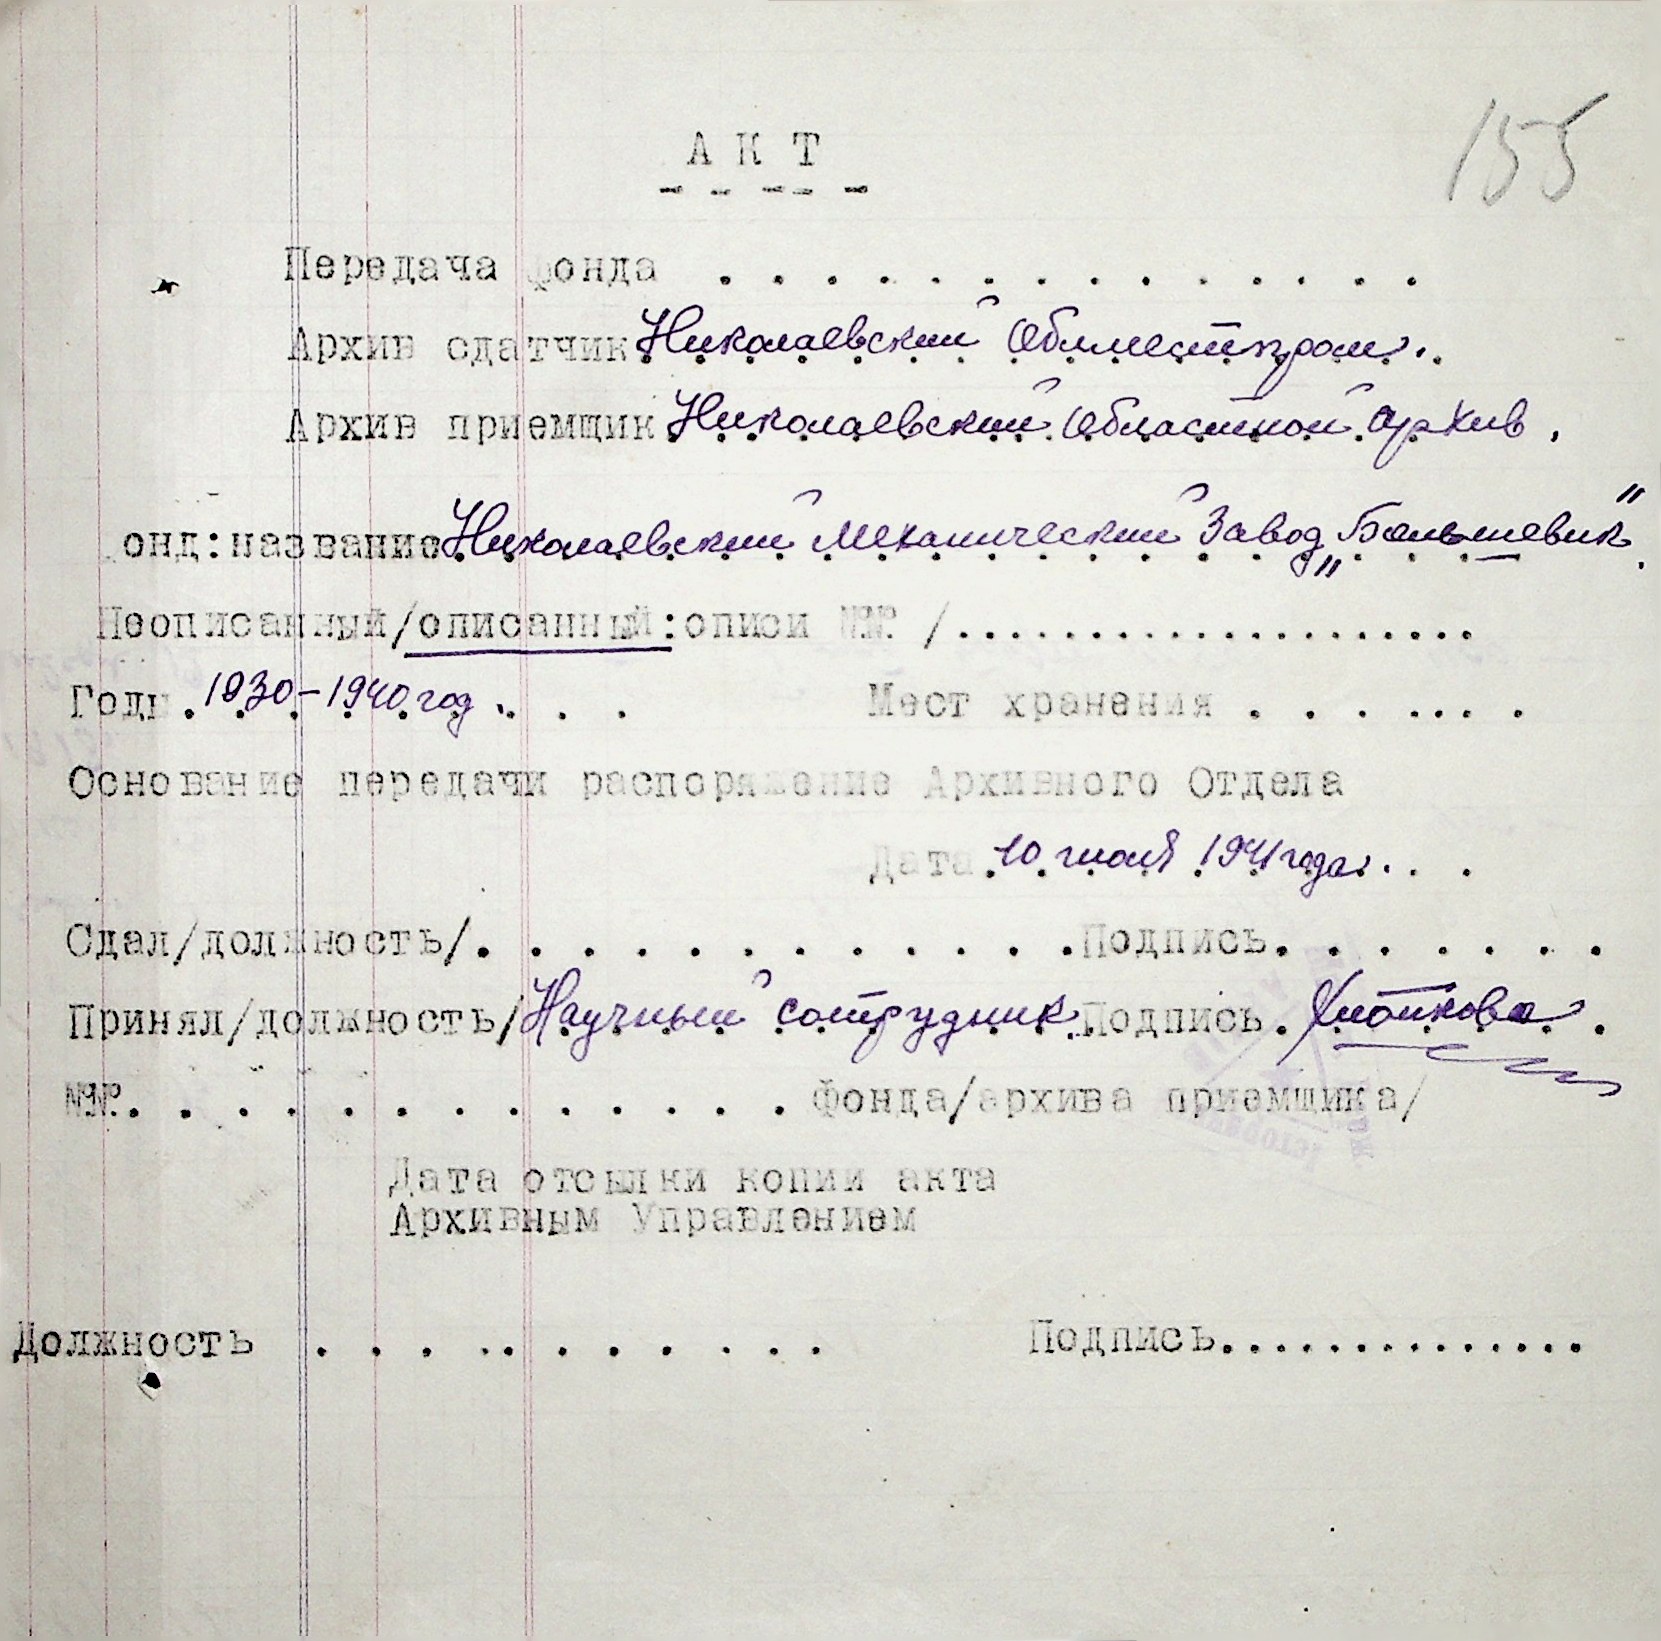 155
А К Т
Передача фонда . . . . . . . . . . . . . .
Архив сдатчик Николаевский Облместпром . .
Архив приемщик Николаевский Областной архив .
онд: название Николаевский механический Завод „Большевик"
Неописанный/описанный: описи №№ /....................
Годы 1930-1940 год . . . Мест хранения . . . . .... .
Основание передачи распоряжение Архивного Отдела
Дата 10 июля 1941 года . . .
Сдал/должность/. . . . . . . . . . . . Подпись. . . . . . .
Принял/должность/ Научный сотрудник Подпись.
№№. . . . . . . . . . . . . Фонда/архива приемщика/
Дата отсылки копии акта
Архивным Управлением
Должность . . . . . . . . . . . Подпись..............